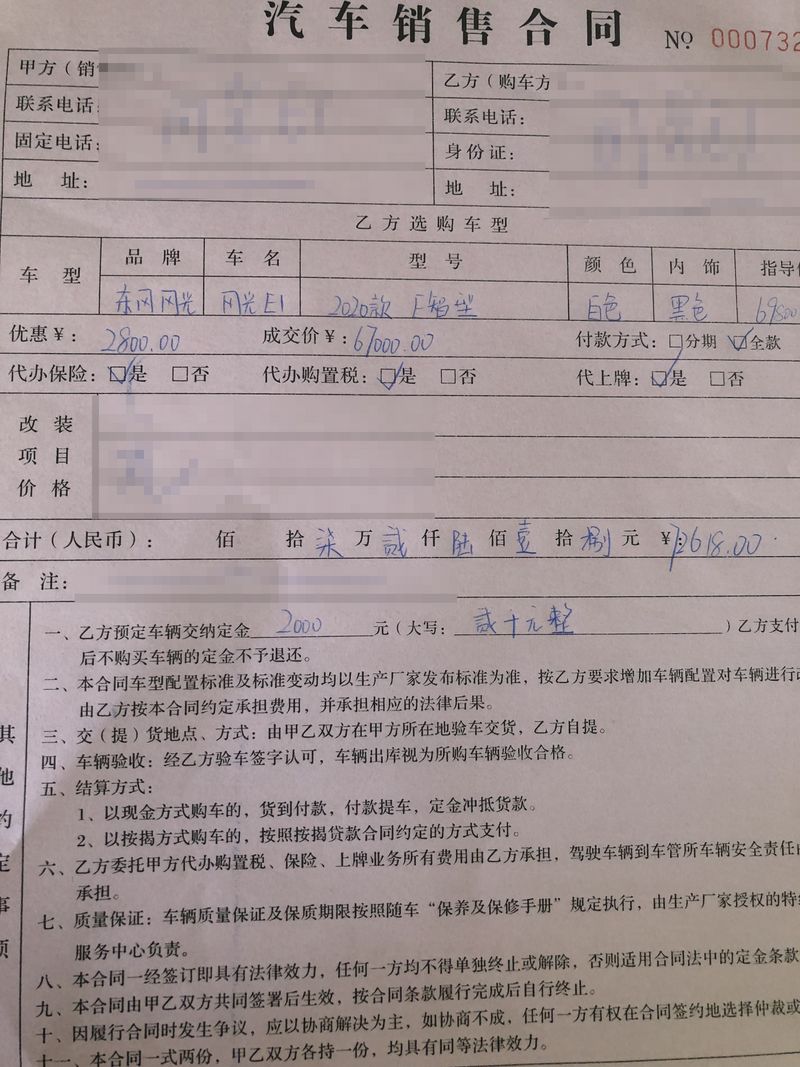 汽车销售合同 № 000732
甲方（销
联系电话:
固定电话:
地 址:
乙方（购车方
联系电话:
身份证:
地 址:
乙方选购车型
车 型 品 牌 车 名 型 号 颜 色 内 饰 指导
东风风光 风光E1 2020款 E智型 白色 黑色 69800
优惠￥: 2800.00 成交价￥: 67000.00 付款方式: □分期 ☑全款
代办保险: ☑是 □否 代办购置税: ☑是 □否 代上牌: ☑是 □否
改 装
项 目
价 格
合计（人民币）: 佰 拾 柒 万 贰 仟 陆 佰 壹 拾 捌 元 ￥: 72618.00
备 注:
一、乙方预定车辆交纳定金 2000 元（大写: 贰十元整 ）乙方支付
后不购买车辆的定金不予退还。
二、本合同车型配置标准及标准变动均以生产厂家发布标准为准，按乙方要求增加车辆配置对车辆进行
由乙方按本合同约定承担费用，并承担相应的法律后果。
三、交（提）货地点、方式: 由甲乙双方在甲方所在地验车交货，乙方自提。
四、车辆验收: 经乙方验车签字认可，车辆出库视为所购车辆验收合格。
五、结算方式:
1、以现金方式购车的，货到付款，付款提车，定金冲抵货款。
2、以按揭方式购车的，按照按揭贷款合同约定的方式支付。
六、乙方委托甲方代办购置税、保险、上牌业务所有费用由乙方承担，驾驶车辆到车管所车辆安全责任由
承担。
七、质量保证: 车辆质量保证及保质期限按照随车“保养及保修手册”规定执行，由生产厂家授权的特
服务中心负责。
八、本合同一经签订即具有法律效力，任何一方均不得单独终止或解除，否则适用合同法中的定金条款
九、本合同由甲乙双方共同签署后生效，按合同条款履行完成后自行终止。
十、因履行合同时发生争议，应以协商解决为主，如协商不成，任何一方有权在合同签约地选择仲裁或
十一、本合同一式两份，甲乙双方各持一份，均具有同等法律效力。
其
他
约
定
事
项